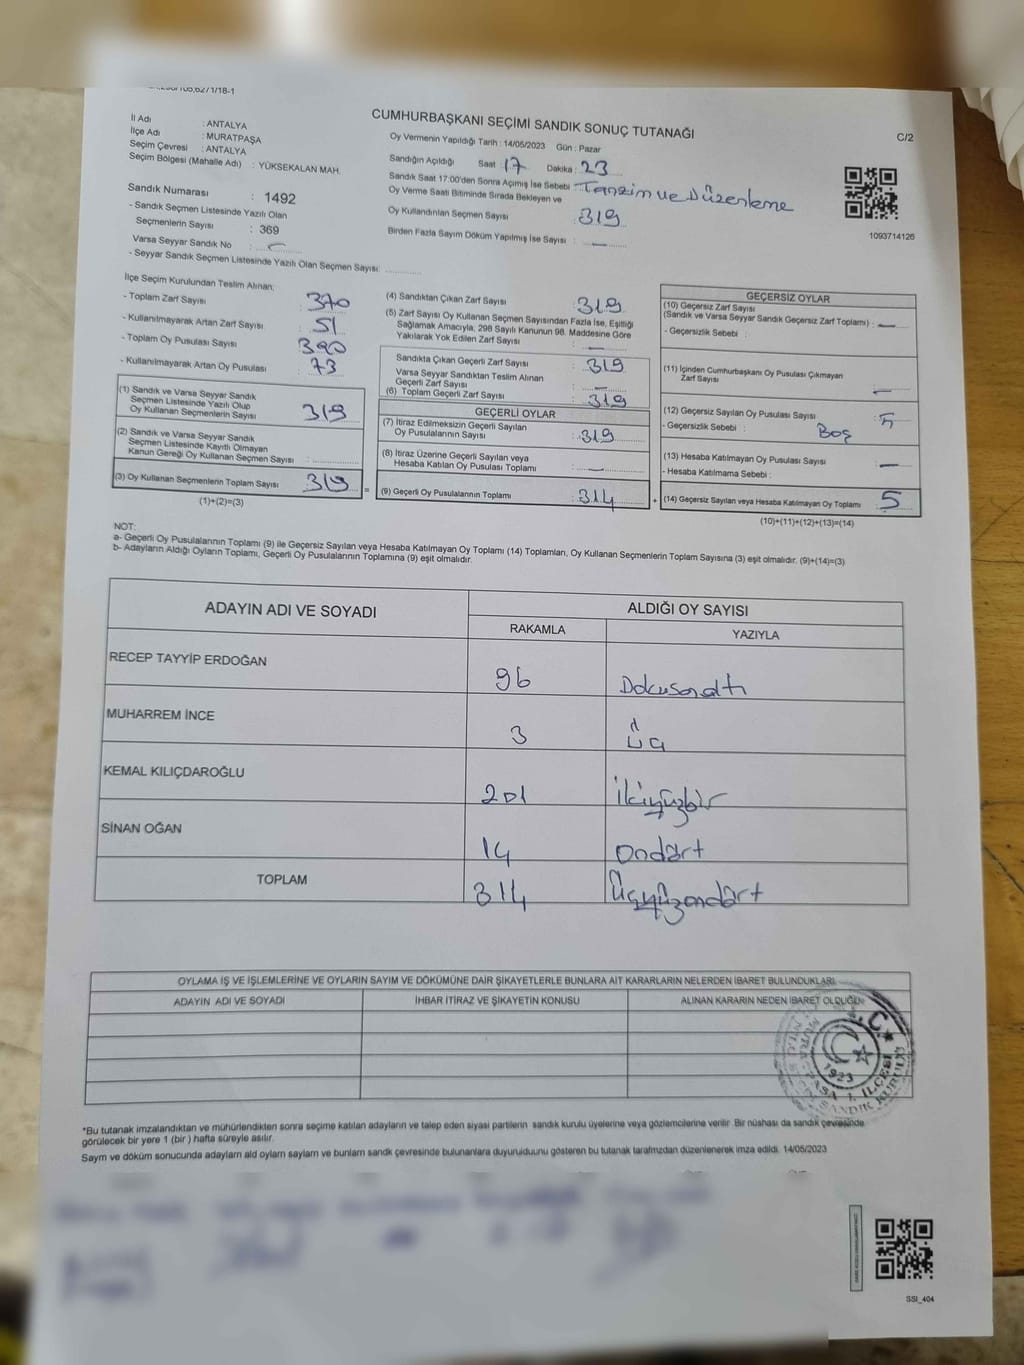 CUMHURBAŞKANI SEÇİMİ SANDIK SONUÇ TUTANAĞI
C/2
İl Adı : ANTALYA
İlçe Adı : MURATPAŞA
Seçim Çevresi : ANTALYA
Seçim Bölgesi (Mahalle Adı) : YÜKSEKALAN MAH.
Sandık Numarası : 1492
- Sandık Seçmen Listesinde Yazılı Olan
Seçmenlerin Sayısı : 369
Varsa Seyyar Sandık No :
- Seyyar Sandık Seçmen Listesinde Yazılı Olan Seçmen Sayısı:
Oy Vermenin Yapıldığı Tarih : 14/05/2023 Gün : Pazar
Sandığın Açıldığı Saat : 17 Dakika : 23
Sandık Saat 17:00'den Sonra Açımış İse Sebebi : Tanzim ve Düzenleme
Oy Verme Saati Bitiminde Sırada Bekleyen ve
Oy Kullandırılan Seçmen Sayısı : 319
Birden Fazla Sayım Döküm Yapılmış İse Sayısı : —
1093714126
İlçe Seçim Kurulundan Teslim Alınan;
- Toplam Zarf Sayısı : 370
- Kullanılmayarak Artan Zarf Sayısı : 51
- Toplam Oy Pusulası Sayısı : 390
- Kullanılmayarak Artan Oy Pusulası : 73
(1) Sandık ve Varsa Seyyar Sandık
Seçmen Listesinde Yazılı Olup
Oy Kullanan Seçmenlerin Sayısı : 319
(2) Sandık ve Varsa Seyyar Sandık
Seçmen Listesinde Kayıtlı Olmayan
Kanun Gereği Oy Kullanan Seçmen Sayısı :
(3) Oy Kullanan Seçmenlerin Toplam Sayısı : 319 =
(1)+(2)=(3)
(4) Sandıktan Çıkan Zarf Sayısı : 319
(5) Zarf Sayısı Oy Kullanan Seçmen Sayısından Fazla İse, Eşitliği
Sağlamak Amacıyla, 298 Sayılı Kanunun 98. Maddesine Göre
Yakılarak Yok Edilen Zarf Sayısı : —
Sandıkta Çıkan Geçerli Zarf Sayısı : 319
Varsa Seyyar Sandıktan Teslim Alınan
Geçerli Zarf Sayısı : —
(6) Toplam Geçerli Zarf Sayısı : 319
GEÇERLİ OYLAR
(7) İtiraz Edilmeksizin Geçerli Sayılan
Oy Pusulalarının Sayısı : 319
(8) İtiraz Üzerine Geçerli Sayılan veya
Hesaba Katılan Oy Pusulası Toplamı : —
(9) Geçerli Oy Pusulalarının Toplamı : 314 +
GEÇERSİZ OYLAR
(10) Geçersiz Zarf Sayısı
(Sandık ve Varsa Seyyar Sandık Geçersiz Zarf Toplamı) : —
- Geçersizlik Sebebi :
(11) İçinden Cumhurbaşkanı Oy Pusulası Çıkmayan
Zarf Sayısı : —
(12) Geçersiz Sayılan Oy Pusulası Sayısı : 5
- Geçersizlik Sebebi : Boş
(13) Hesaba Katılmayan Oy Pusulası Sayısı : —
- Hesaba Katılmama Sebebi :
(14) Geçersiz Sayılan veya Hesaba Katılmayan Oy Toplamı : 5
(10)+(11)+(12)+(13)=(14)
NOT:
a- Geçerli Oy Pusulalarının Toplamı (9) ile Geçersiz Sayılan veya Hesaba Katılmayan Oy Toplamı (14) Toplamları, Oy Kullanan Seçmenlerin Toplam Sayısına (3) eşit olmalıdır. (9)+(14)=(3)
b- Adayların Aldığı Oyların Toplamı, Geçerli Oy Pusulalarının Toplamına (9) eşit olmalıdır.
ADAYIN ADI VE SOYADI ALDIĞI OY SAYISI
RAKAMLA YAZIYLA
RECEP TAYYİP ERDOĞAN 96 Doksanaltı
MUHARREM İNCE 3 Üç
KEMAL KILIÇDAROĞLU 201 İkiyüzbir
SİNAN OĞAN 14 Ondört
TOPLAM 314 Üçyüzondört
OYLAMA İŞ VE İŞLEMLERİNE VE OYLARIN SAYIM VE DÖKÜMÜNE DAİR ŞİKAYETLERLE BUNLARA AİT KARARLARIN NELERDEN İBARET BULUNDUKLARI
ADAYIN ADI VE SOYADI İHBAR İTİRAZ VE ŞİKAYETİN KONUSU ALINAN KARARIN NEDEN İBARET OLDUĞU
T.C.
1923
*Bu tutanak imzalandıktan ve mühürlendikten sonra seçime katılan adayların ve talep eden siyasi partilerin sandık kurulu üyelerine veya gözlemcilerine verilir. Bir nüshası da sandık çevresinde
görülecek bir yere 1 (bir) hafta süreyle asılır.
Saym ve döküm sonucunda adaylarn ald oylarn saylarn ve bunlarn sandk çevresinde bulunanlara duyuruduunu gösteren bu tutanak tarafmzdan düzenlenerek imza edildi. 14/05/2023
SSI_404